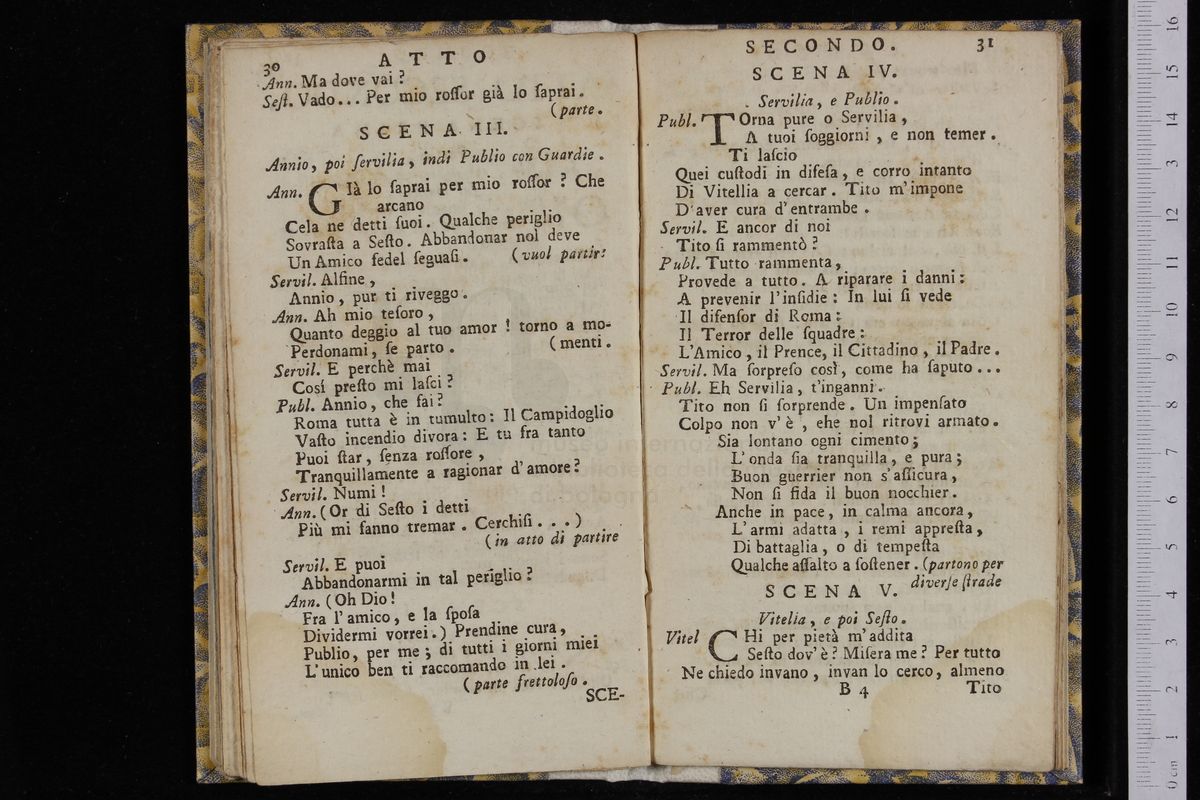 30
ATTO
Ann. Ma dove vai?
Seſt. Vado... Per mio roſſor già lo ſaprai.
(parte.
SCENA III.
Annio, poi ſervilia, indi Publio con Guardie.
Ann. Già lo ſaprai per mio roſſor? Che
arcano
Cela ne detti ſuoi. Qualche periglio
Sovraſta a Seſto. Abbandonar nol deve
Un Amico fedel ſeguaſi. (vuol partir:
Servil. Alfine,
Annio, pur ti riveggo.
Ann. Ah mio teſoro,
Quanto deggio al tuo amor! torno a mo-
Perdonami, ſe parto. (menti.
Servil. E perchè mai
Cosí preſto mi laſci?
Publ. Annio, che fai?
Roma tutta è in tumulto: Il Campidoglio
Vaſto incendio divora: E tu fra tanto
Puoi ſtar, ſenza roſſore,
Tranquillamente a ragionar d'amore?
Servil. Numi!
Ann. (Or di Seſto i detti
Più mi fanno tremar. Cerchiſi...)
(in atto di partire
Servil. E puoi
Abbandonarmi in tal periglio?
Ann. (Oh Dio!
Fra l'amico, e la ſpoſa
Dividermi vorrei.) Prendine cura,
Publio, per me; di tutti i giorni miei
L'unico ben ti raccomando in lei.
(parte frettoloſo.
SCE-
SECONDO.
31
SCENA IV.
Servilia, e Publio.
Publ. TOrna pure o Servilia,
A tuoi ſoggiorni, e non temer.
Ti laſcio
Quei cuſtodi in difeſa, e corro intanto
Di Vitellia a cercar. Tito m'impone
D'aver cura d'entrambe.
Servil. E ancor di noi
Tito ſi rammentò?
Publ. Tutto rammenta,
Provede a tutto. A riparare i danni:
A prevenir l'inſidie: In lui ſi vede
Il difenſor di Roma:
Il Terror delle ſquadre:
L'Amico, il Prence, il Cittadino, il Padre.
Servil. Ma ſorpreſo così, come ha ſaputo...
Publ. Eh Servilia, t'inganni.
Tito non ſi ſorprende. Un impenſato
Colpo non v'è, ehe nol ritrovi armato.
Sia lontano ogni cimento;
L'onda ſia tranquilla, e pura;
Buon guerrier non s'aſſicura,
Non ſi fida il buon nocchier.
Anche in pace, in calma ancora,
L'armi adatta, i remi appreſta,
Di battaglia, o di tempeſta
Qualche aſſalto a ſoſtener. (partono per
diverſe ſtrade
SCENA V.
Vitelia, e poi Seſto.
Vitel CHi per pietà m'addita
Seſto dov'è? Miſera me? Per tutto
Ne chiedo invano, invan lo cerco, almeno
B 4 Tito